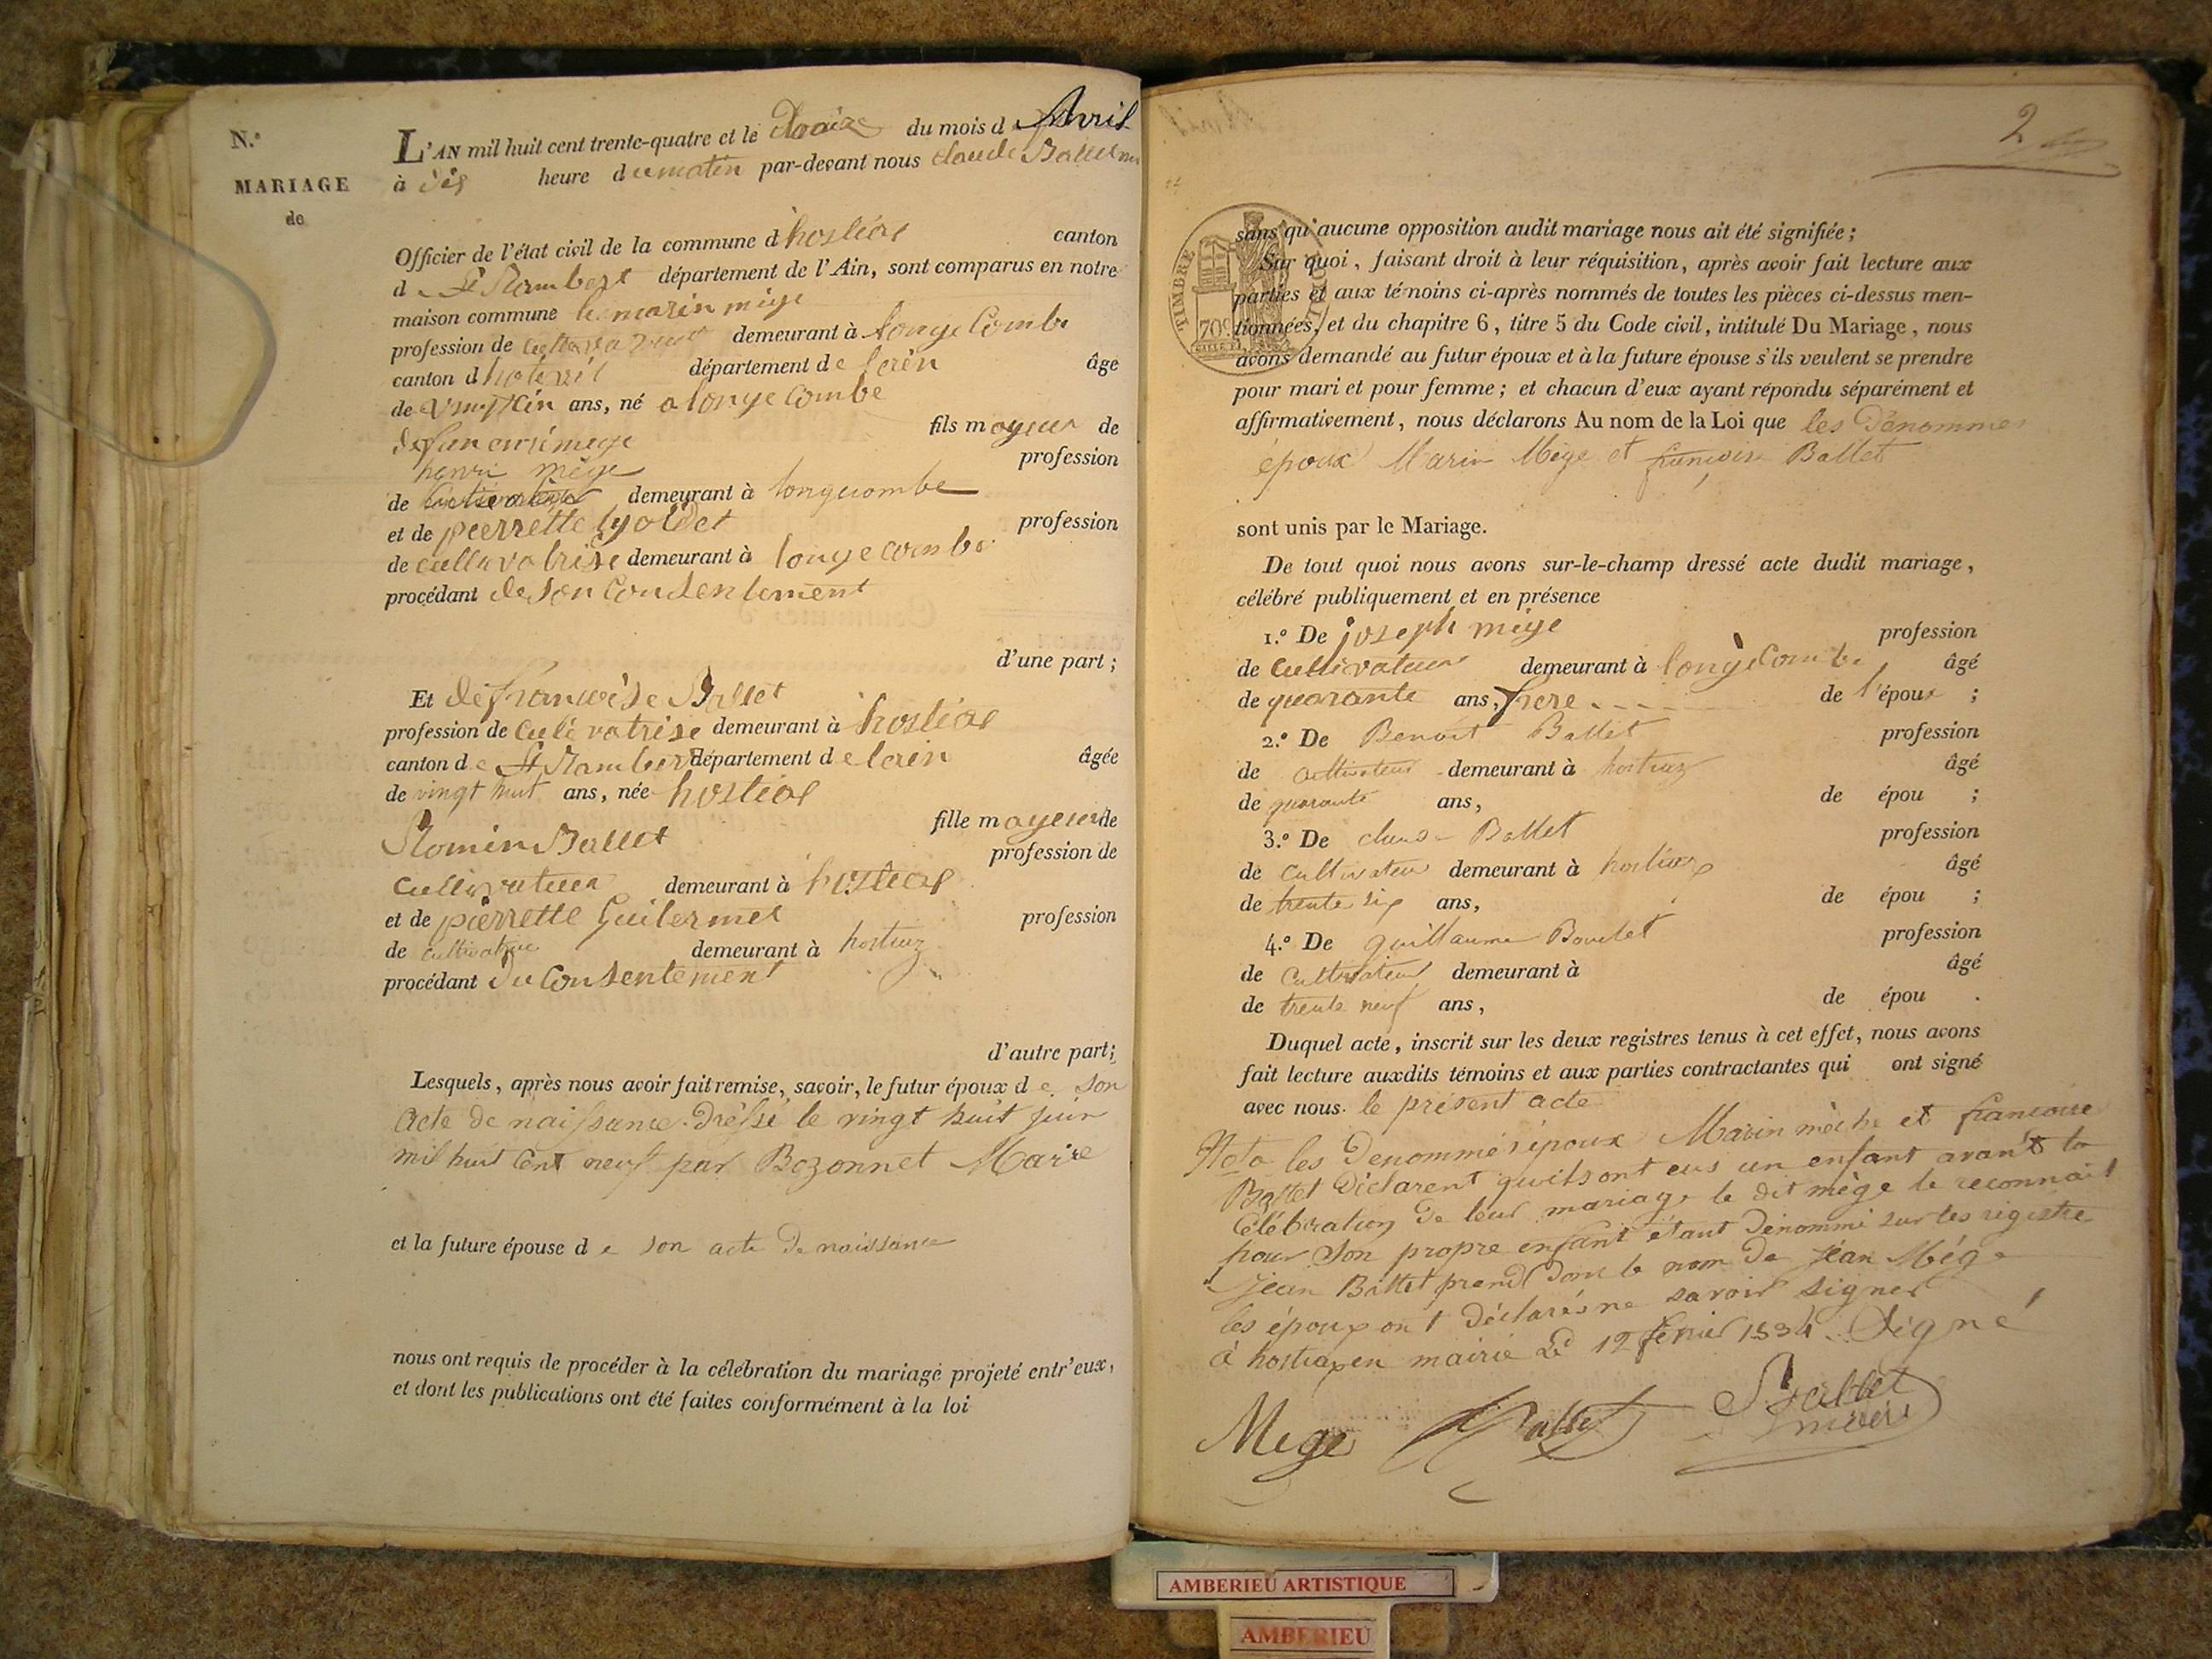 N.º
MARIAGE
de
L'AN mil huit cent trente-quatre et le du mois d Avril
à dis heure du matin par-devant nous claude Ballet
Officier de l'état civil de la commune d hostias canton
d St Rambert département de l'Ain, sont comparus en notre
maison commune marin mege
profession de demeurant à longe Combe
canton d département de lein âge
de ans, né a longe Combe
fils mageur de
henri mège profession
de demeurant à longecombe
et de pierrette profession
de cultivatrise demeurant à longe combe
procédant de son Consentement
d'une part ;
Et de francoise Ballet
profession de culivatrise demeurant à hostias
canton de St Rambert département de lein âgée
de vingt huit ans, née hostias
fille mageur de
Romin Ballet profession de
Cultivateur demeurant à hostias
et de pierrette Guilermet profession
de cultivatrice demeurant à hostiaz
procédant du Consentement
d'autre part ;
Lesquels, après nous avoir fait remise, savoir, le futur époux de son
acte de naissance dressé le vingt huit juin
mil huit Cent neuf par Bozonnet Maire
et la future épouse de son acte de naissance
nous ont requis de procéder à la célébration du mariage projeté entr'eux,
et dont les publications ont été faites conformément à la loi
2
TIMBRE
70c
sans qu'aucune opposition audit mariage nous ait été signifiée ;
Sur quoi, faisant droit à leur réquisition, après avoir fait lecture aux
parties et aux témoins ci-après nommés de toutes les pièces ci-dessus men-
tionnées, et du chapitre 6, titre 5 du Code civil, intitulé Du Mariage, nous
avons demandé au futur époux et à la future épouse s'ils veulent se prendre
pour mari et pour femme ; et chacun d'eux ayant répondu séparément et
affirmativement, nous déclarons Au nom de la Loi que les Dénommés
époux Marin Mège et françoise Ballet
sont unis par le Mariage.
De tout quoi nous avons sur-le-champ dressé acte dudit mariage,
célébré publiquement et en présence
1.º De joseph mege profession
de Cultivateur demeurant à longe Combe âgé
de quarante ans, frere de l'époux ;
2.º De Benoit Ballet profession
de cultivateur demeurant à hostiaz âgé
de quarante ans, de épou ;
3.º De Ballet profession
de Cultivateur demeurant à hostiaz âgé
de trente six ans, de épou ;
4.º De guillaume Boulet profession
de Cultivateur demeurant à âgé
de trente neuf ans, de épou .
Duquel acte, inscrit sur les deux registres tenus à cet effet, nous avons
fait lecture auxdits témoins et aux parties contractantes qui ont signé
avec nous. le présent acte
Nota les Denommés époux Marin mèche et francoise
Ballet Déclarent quils ont eus un enfant avant la
Célébration de leur mariage le dit mège le reconnait
pour Son propre enfant étant Dénommé sur les registre
Jean Ballet prend donc le nom de Jean Mége
les époux ont Déclarés ne savoir signer
à hostiaz en mairie Le 12 février 1834. Signé
Mege Ballet Ballet
maire
AMBERIEU ARTISTIQUE
AMBERIEU